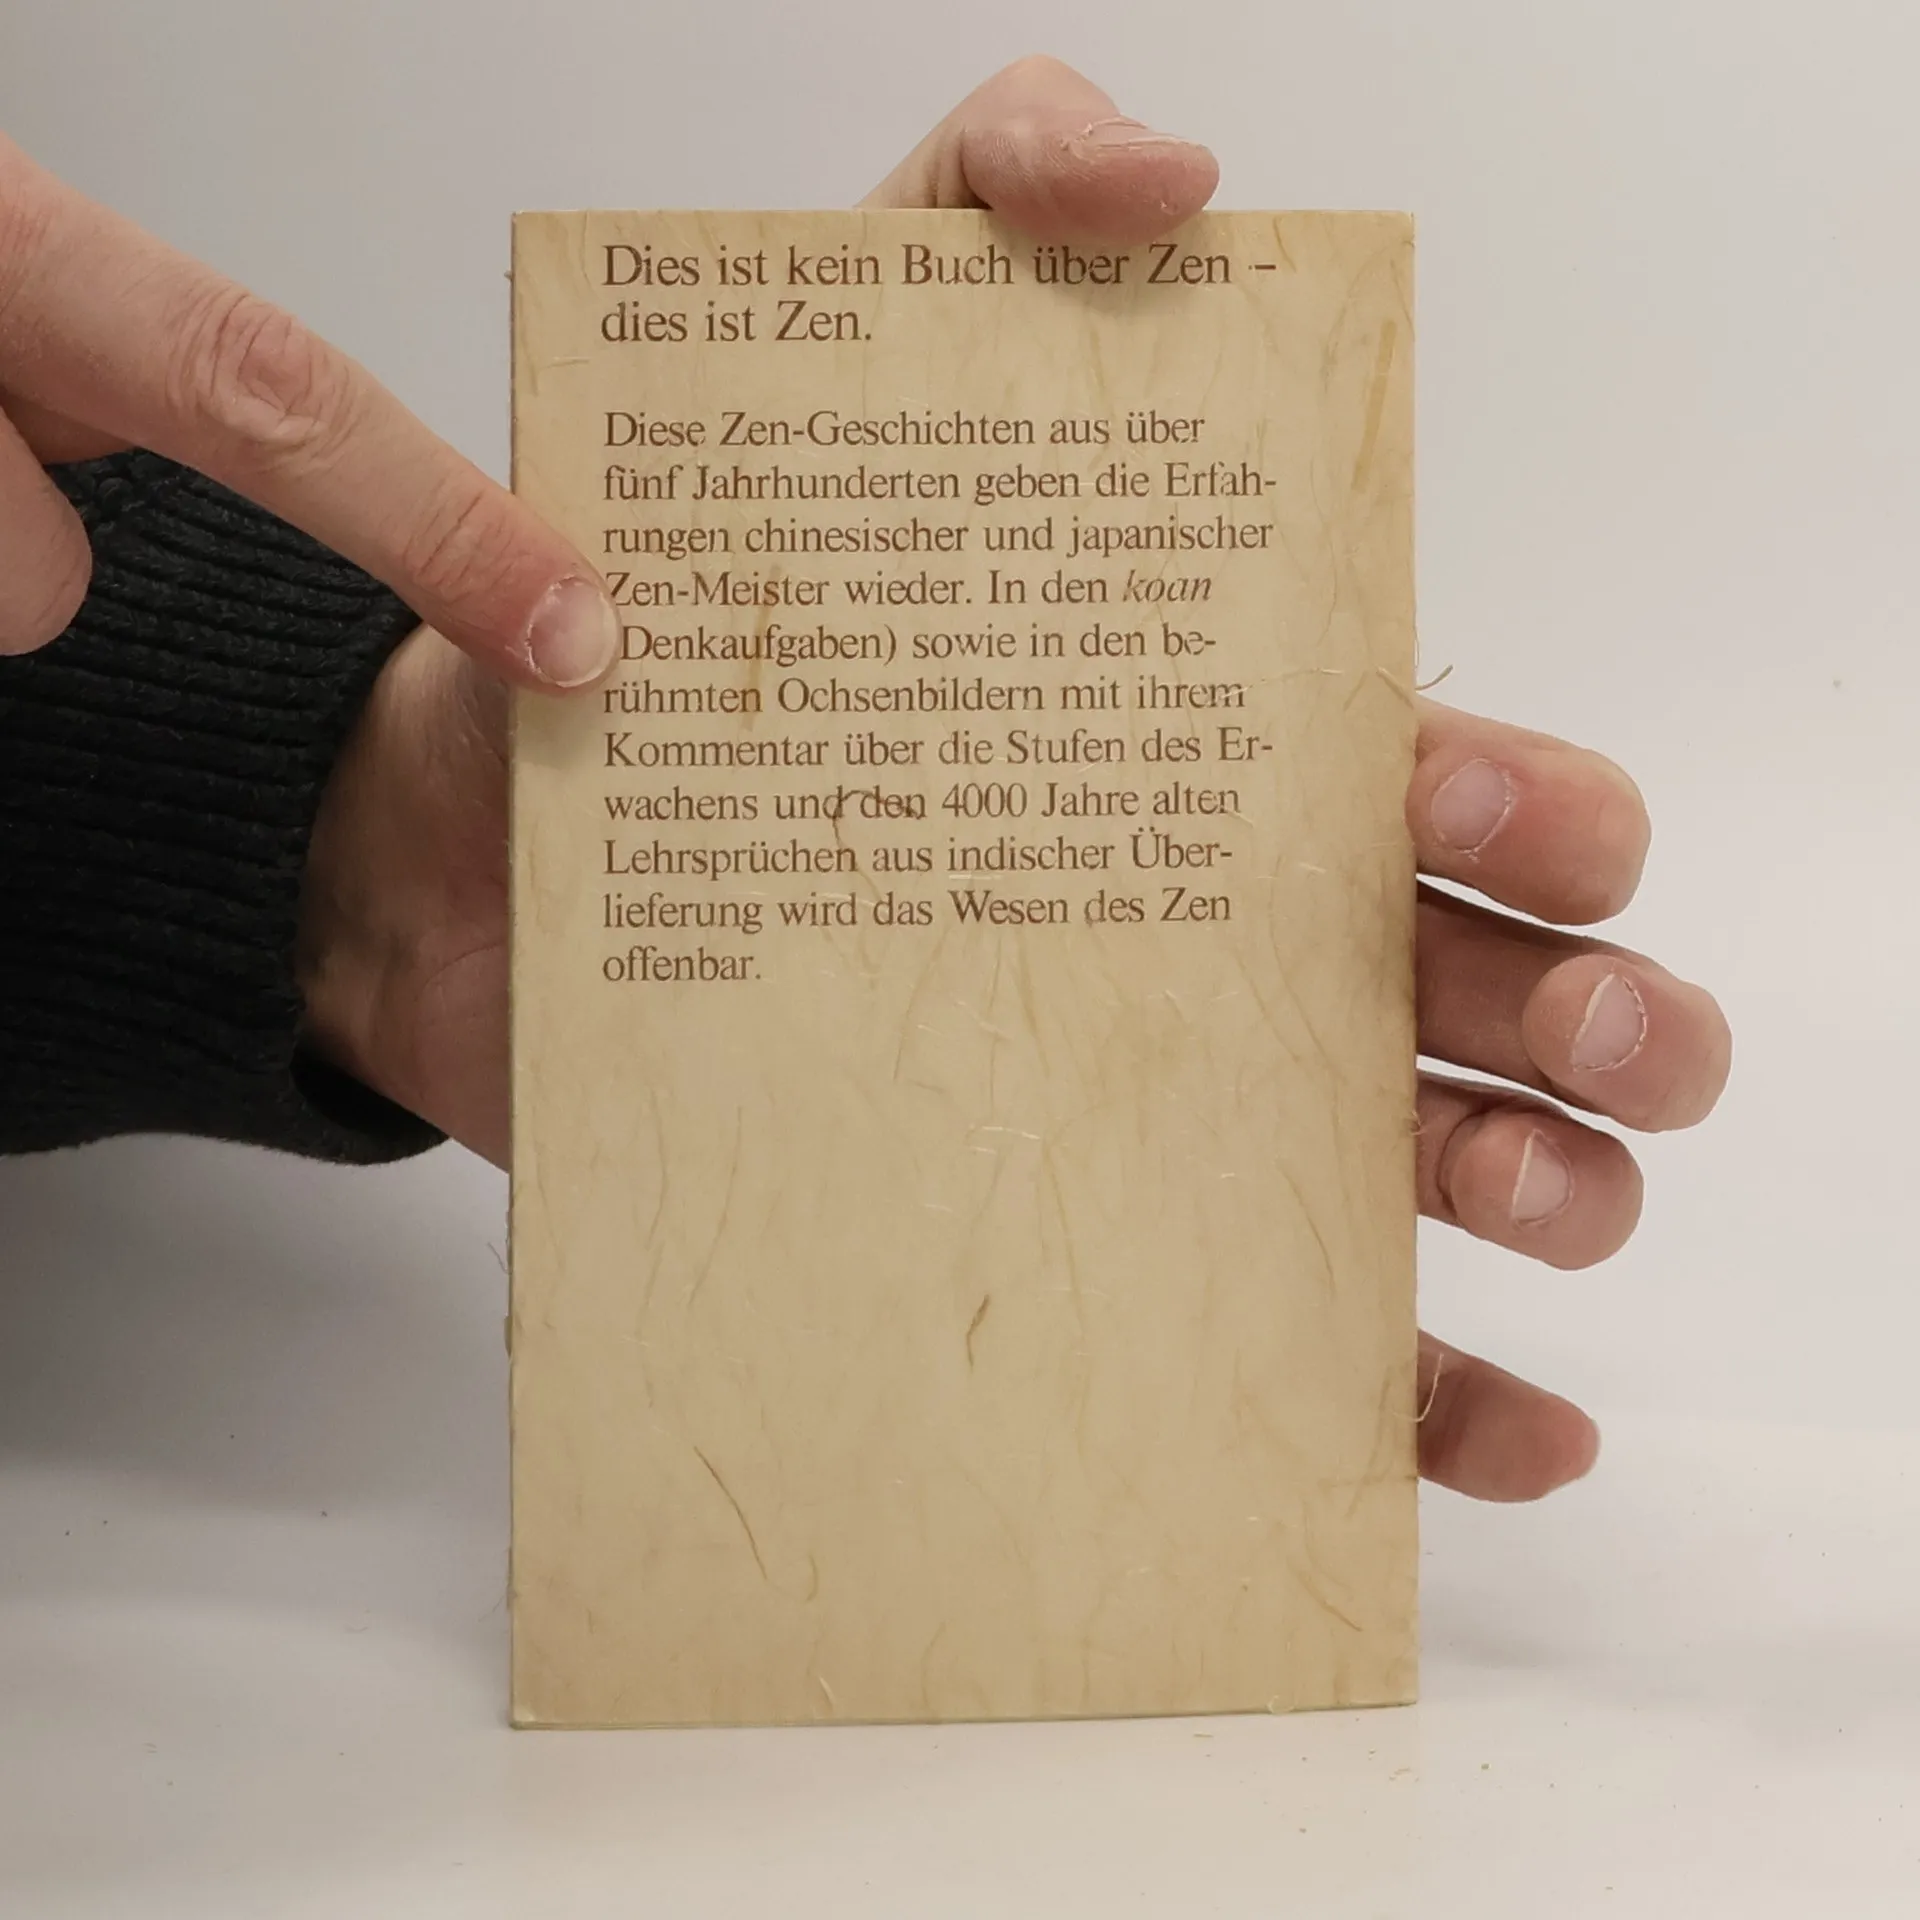 Dies ist kein Buch über Zen –
dies ist Zen.
Diese Zen-Geschichten aus über
fünf Jahrhunderten geben die Erfah-
rungen chinesischer und japanischer
Zen-Meister wieder. In den koan
Denkaufgaben) sowie in den be-
rühmten Ochsenbildern mit ihrem
Kommentar über die Stufen des Er-
wachens und den 4000 Jahre alten
Lehrsprüchen aus indischer Über-
lieferung wird das Wesen des Zen
offenbar.